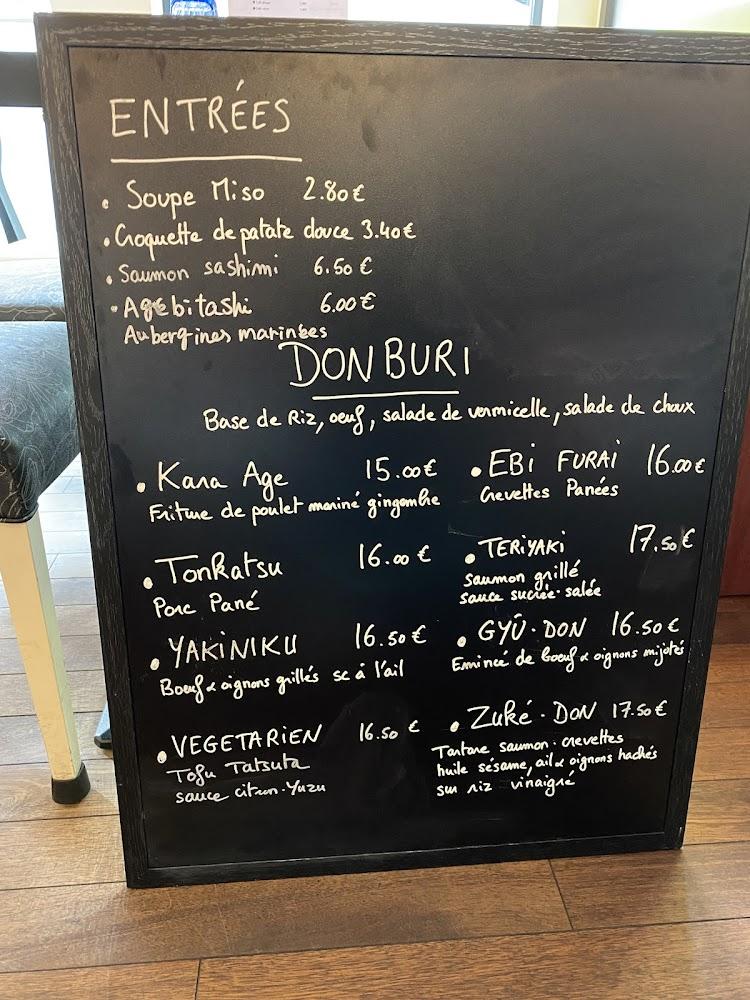 ENTRÉES
• Soupe Miso 2.80€
• Croquette de patate douce 3.40€
• Saumon sashimi 6.50€
• Agebitashi 6.00€
Aubergines marinées
DONBURI
Base de Riz, oeuf, salade de vermicelle, salade de choux
• Kara Age 15.00€
Friture de poulet mariné gingembre
• EBI FURAI 16.00€
Crevettes Panées
• Tonkatsu 16.00€
Porc Pané
• TERiYAKi 17.50€
Saumon grillé
sauce sucrée-salée
• YAKiNiKU 16.50€
Boeuf & oignons grillés sc à l'ail
• GYÛ-DON 16.50€
Emincé de boeuf & oignons mijotés
• VEGETARIEN 16.50€
Tofu Tatsuta
sauce citron-Yuzu
• Zuké-DON 17.50€
Tartare saumon-crevettes
huile sésame, ail & oignons hachés
sur riz vinaigré